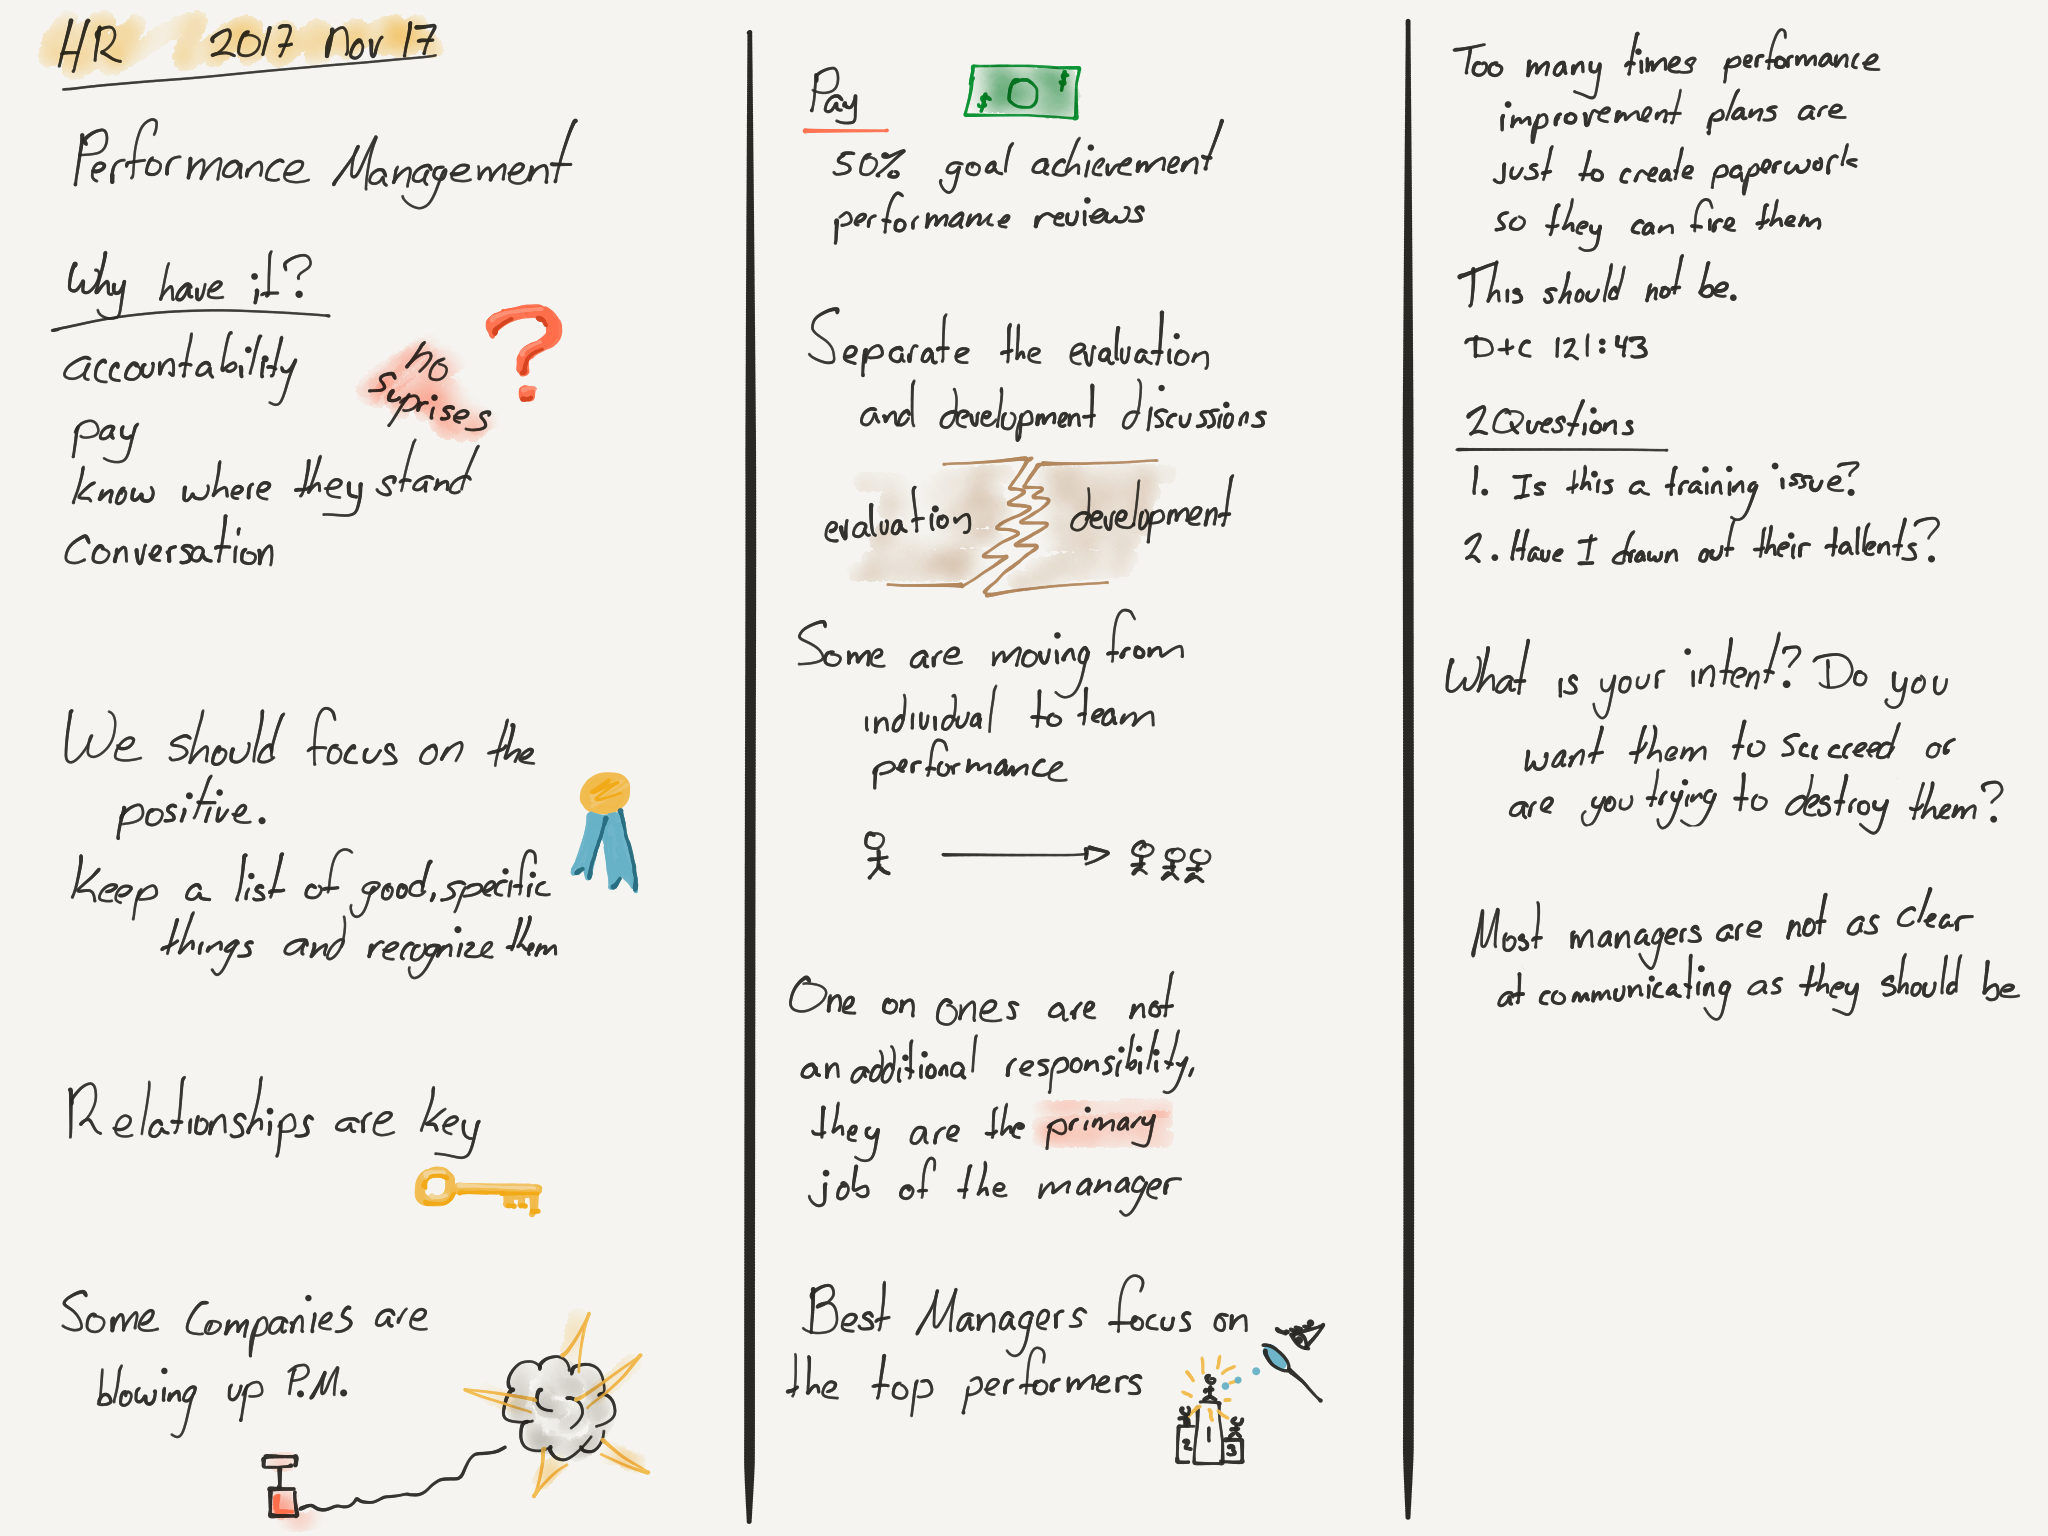 HR 2017 Nov 17
Performance Management
Why have it?
accountability
no
suprises
pay
know where they stand
Conversation
We should focus on the
positive.
Keep a list of good, specific
things and recognize them
Relationships are key
Some Companies are
blowing up P.M.
Pay
$ $
50% goal achievement
performance reviews
Separate the evaluation
and development discussions
evaluation development
Some are moving from
individual to team
performance
One on ones are not
an additional responsibility,
they are the primary
job of the manager
Best Managers focus on
the top performers
2 1 3
Too many times performance
improvement plans are
just to create paperwork
so they can fire them
This should not be.
D+C 121:43
2 Questions
1. Is this a training issue?
2. Have I drawn out their tallents?
What is your intent? Do you
want them to succeed or
are you trying to destroy them?
Most managers are not as clear
at communicating as they should be